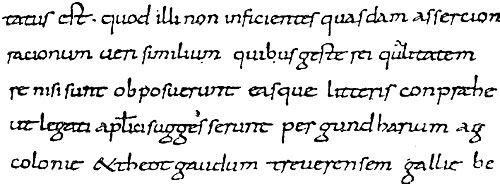 tatus est· quod illi non inficientes quasdam assercion
racionum veri similium quibus geste rei qu̅litatem
re nisi sunt obposuerunt easque litteris conpræhe
ut legati apłici suggesserunt per gundharium ag
colonie & theotgaudum treverensem gallie be